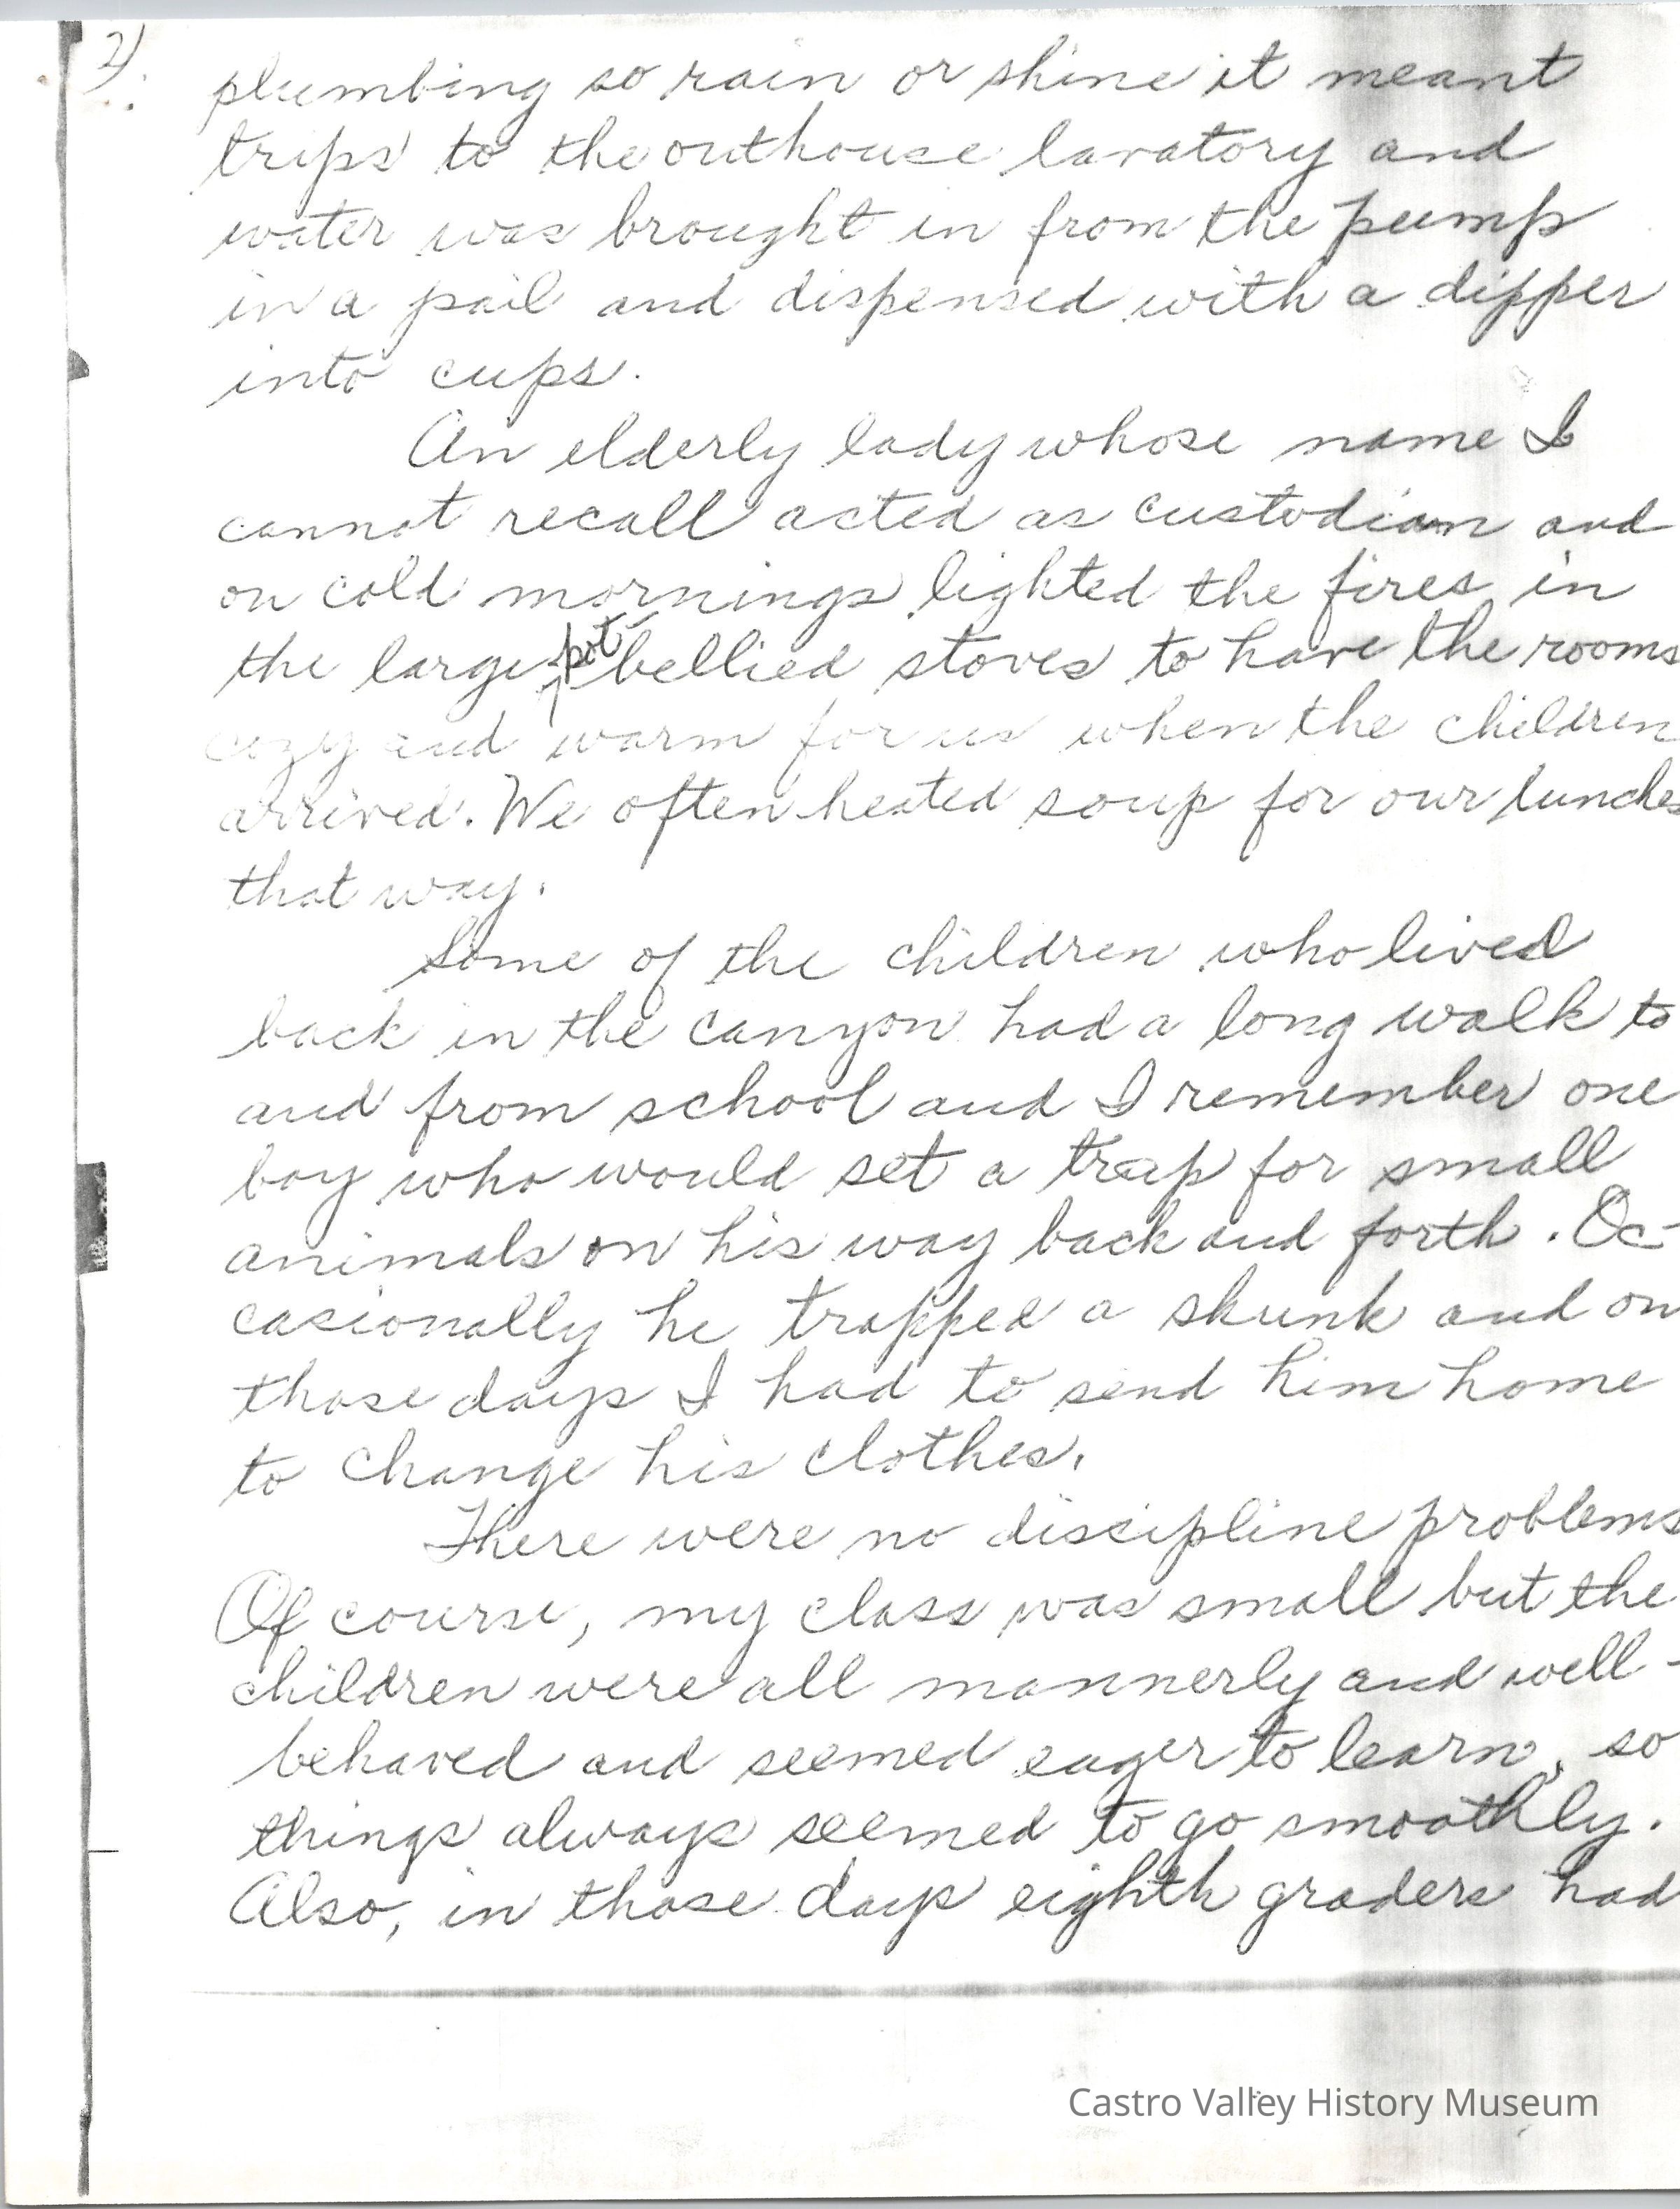 2).
plumbing so rain or shine it meant
trips to the outhouse lavatory and
water was brought in from the pump
in a pail and dispensed with a dipper
into cups.
An elderly lady whose name I
cannot recall acted as custodian and
on cold mornings lighted the fires in
the large pot-bellied stoves to have the rooms
cozy and warm for us when the children
arrived. We often heated soup for our lunches
that way.
Some of the children who lived
back in the canyon had a long walk to
and from school and I remember one
boy who would set a trap for small
animals on his way back and forth. Oc-
casionally he trapped a skunk and on
those days I had to send him home
to change his clothes.
There were no discipline problems
Of course, my class was small but the
children were all mannerly and well-
behaved and seemed eager to learn, so
things always seemed to go smoothly.
Also, in those days eighth graders had
Castro Valley History Museum